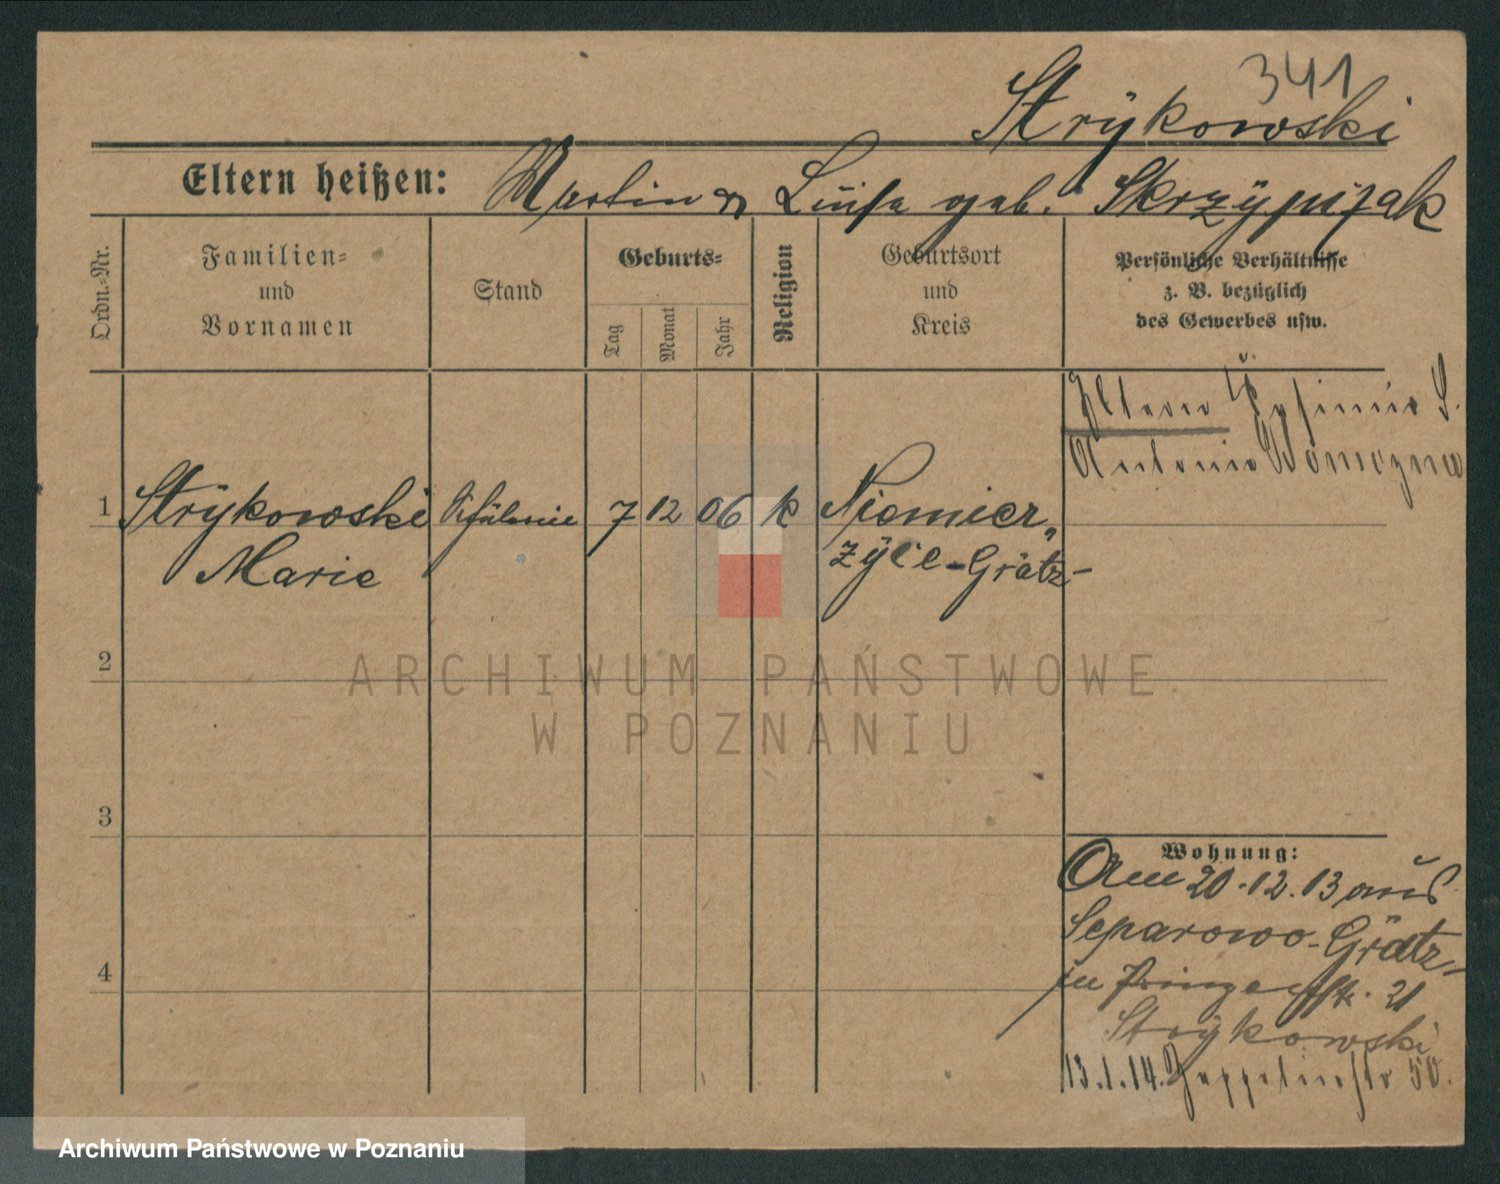 341
Strÿkowski
Eltern heißen: Martin u Luise geb. Skrzÿpczak
Ordn.-Nr.
Familien-
und
Vornamen
Stand
Geburts-
Tag
Monat
Jahr
Religion
Geburtsort
und
Kreis
Persönliche Verhältnisse
z. B. bezüglich
des Gewerbes usw.
Eltern
Antonie
1 Strÿkowski Schülerin 7 12 06 k Niemier„
Marie zÿce-Grätz-
2
ARCHIWUM PAŃSTWOWE
W POZNANIU
3
Wohnung:
Am 20.12.13 aus
Separowo-Grätz-
in Prinzenstr. 21
4
Strÿkowski
13.1.14. Zeppelinstr 50.
Archiwum Państwowe w Poznaniu